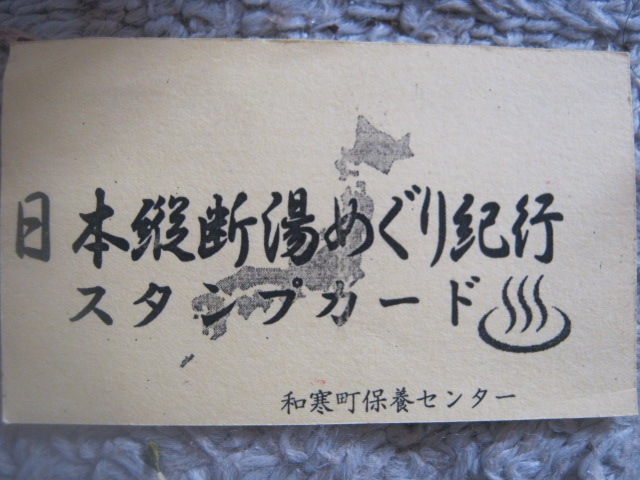 日本縦断湯めぐり紀行
スタンプカード
和寒町保養センター